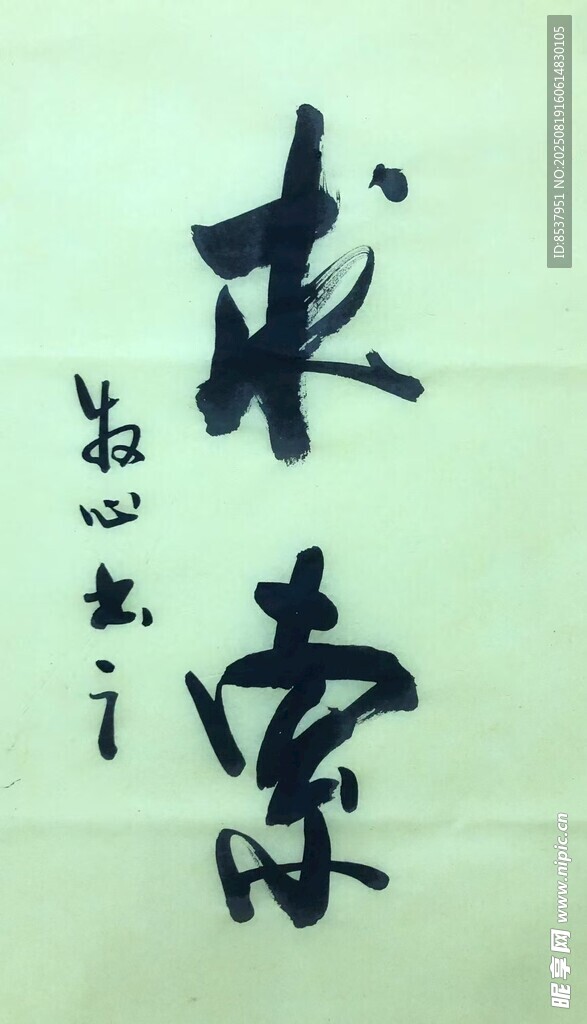 求索
牧心书于
ID:8537951 NO:20250819160614830105
昵享网 www.nipic.cn